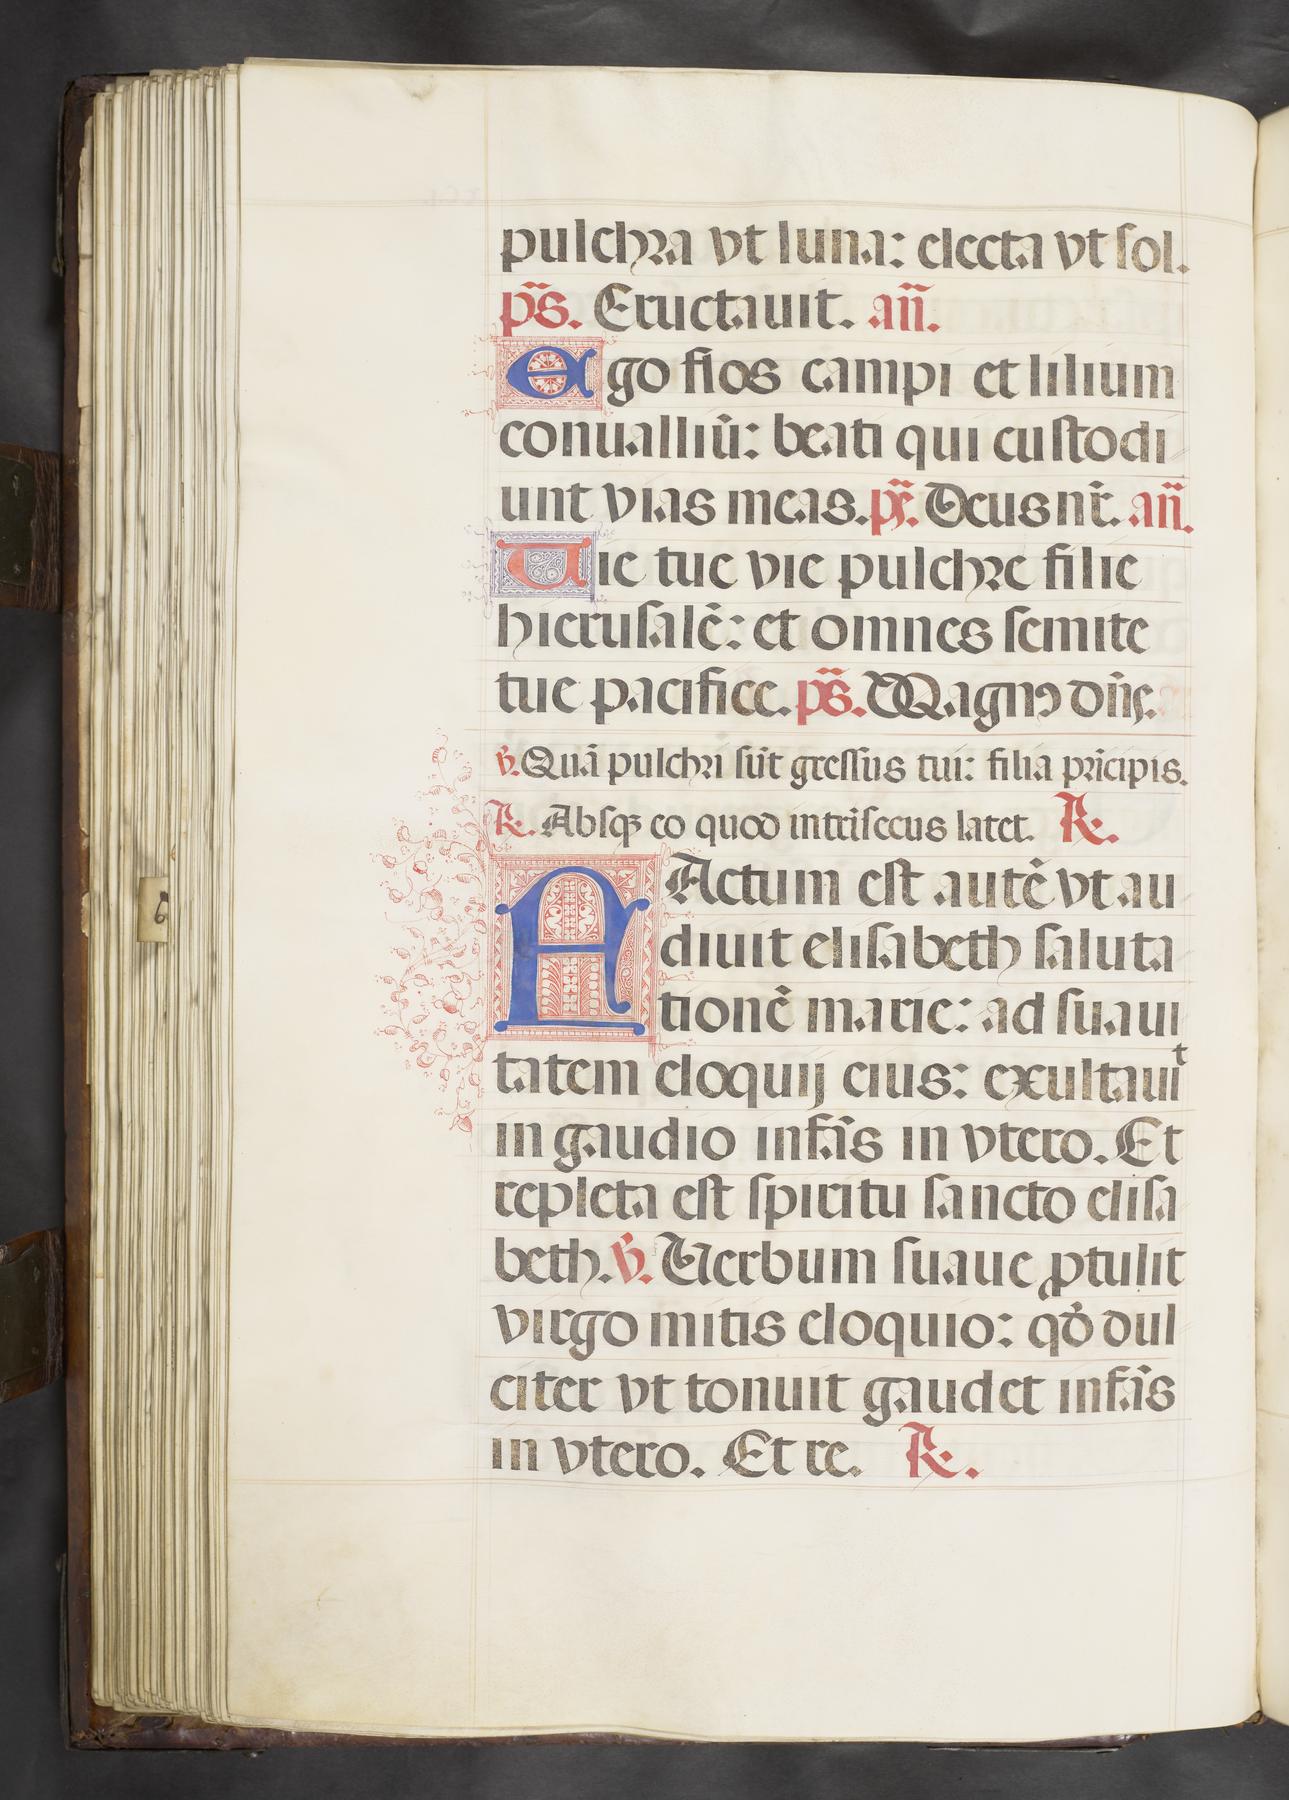 pulchra vt luna: electa vt sol.
p̄s. Eructauit. añ.
Ego flos campi et lilium
conualliū: beati qui custodi
unt vias meas. p̄s. Deus nr̄. añ.
Uie tue vie pulchre filie
hierusalē: et omnes semite
tue pacifice. p̄s. Magnꝯ dn̄s.
℣. Quā pulchri sūt gressus tui: filia prīcipis.
℟. Absqꝫ eo quod intrīsecus latet. ℟.
AActum est autē vt au
diuit elisabeth saluta
tionē marie: ad suaui
tatem eloquij eius: exultauit
in gaudio infās in vtero. Et
repleta est spiritu sancto elisa
beth. ℣. Uerbum suaue ꝓtulit
virgo mitis eloquio: qđ dul
citer vt tonuit gaudet infās
in vtero. Et re. ℟.